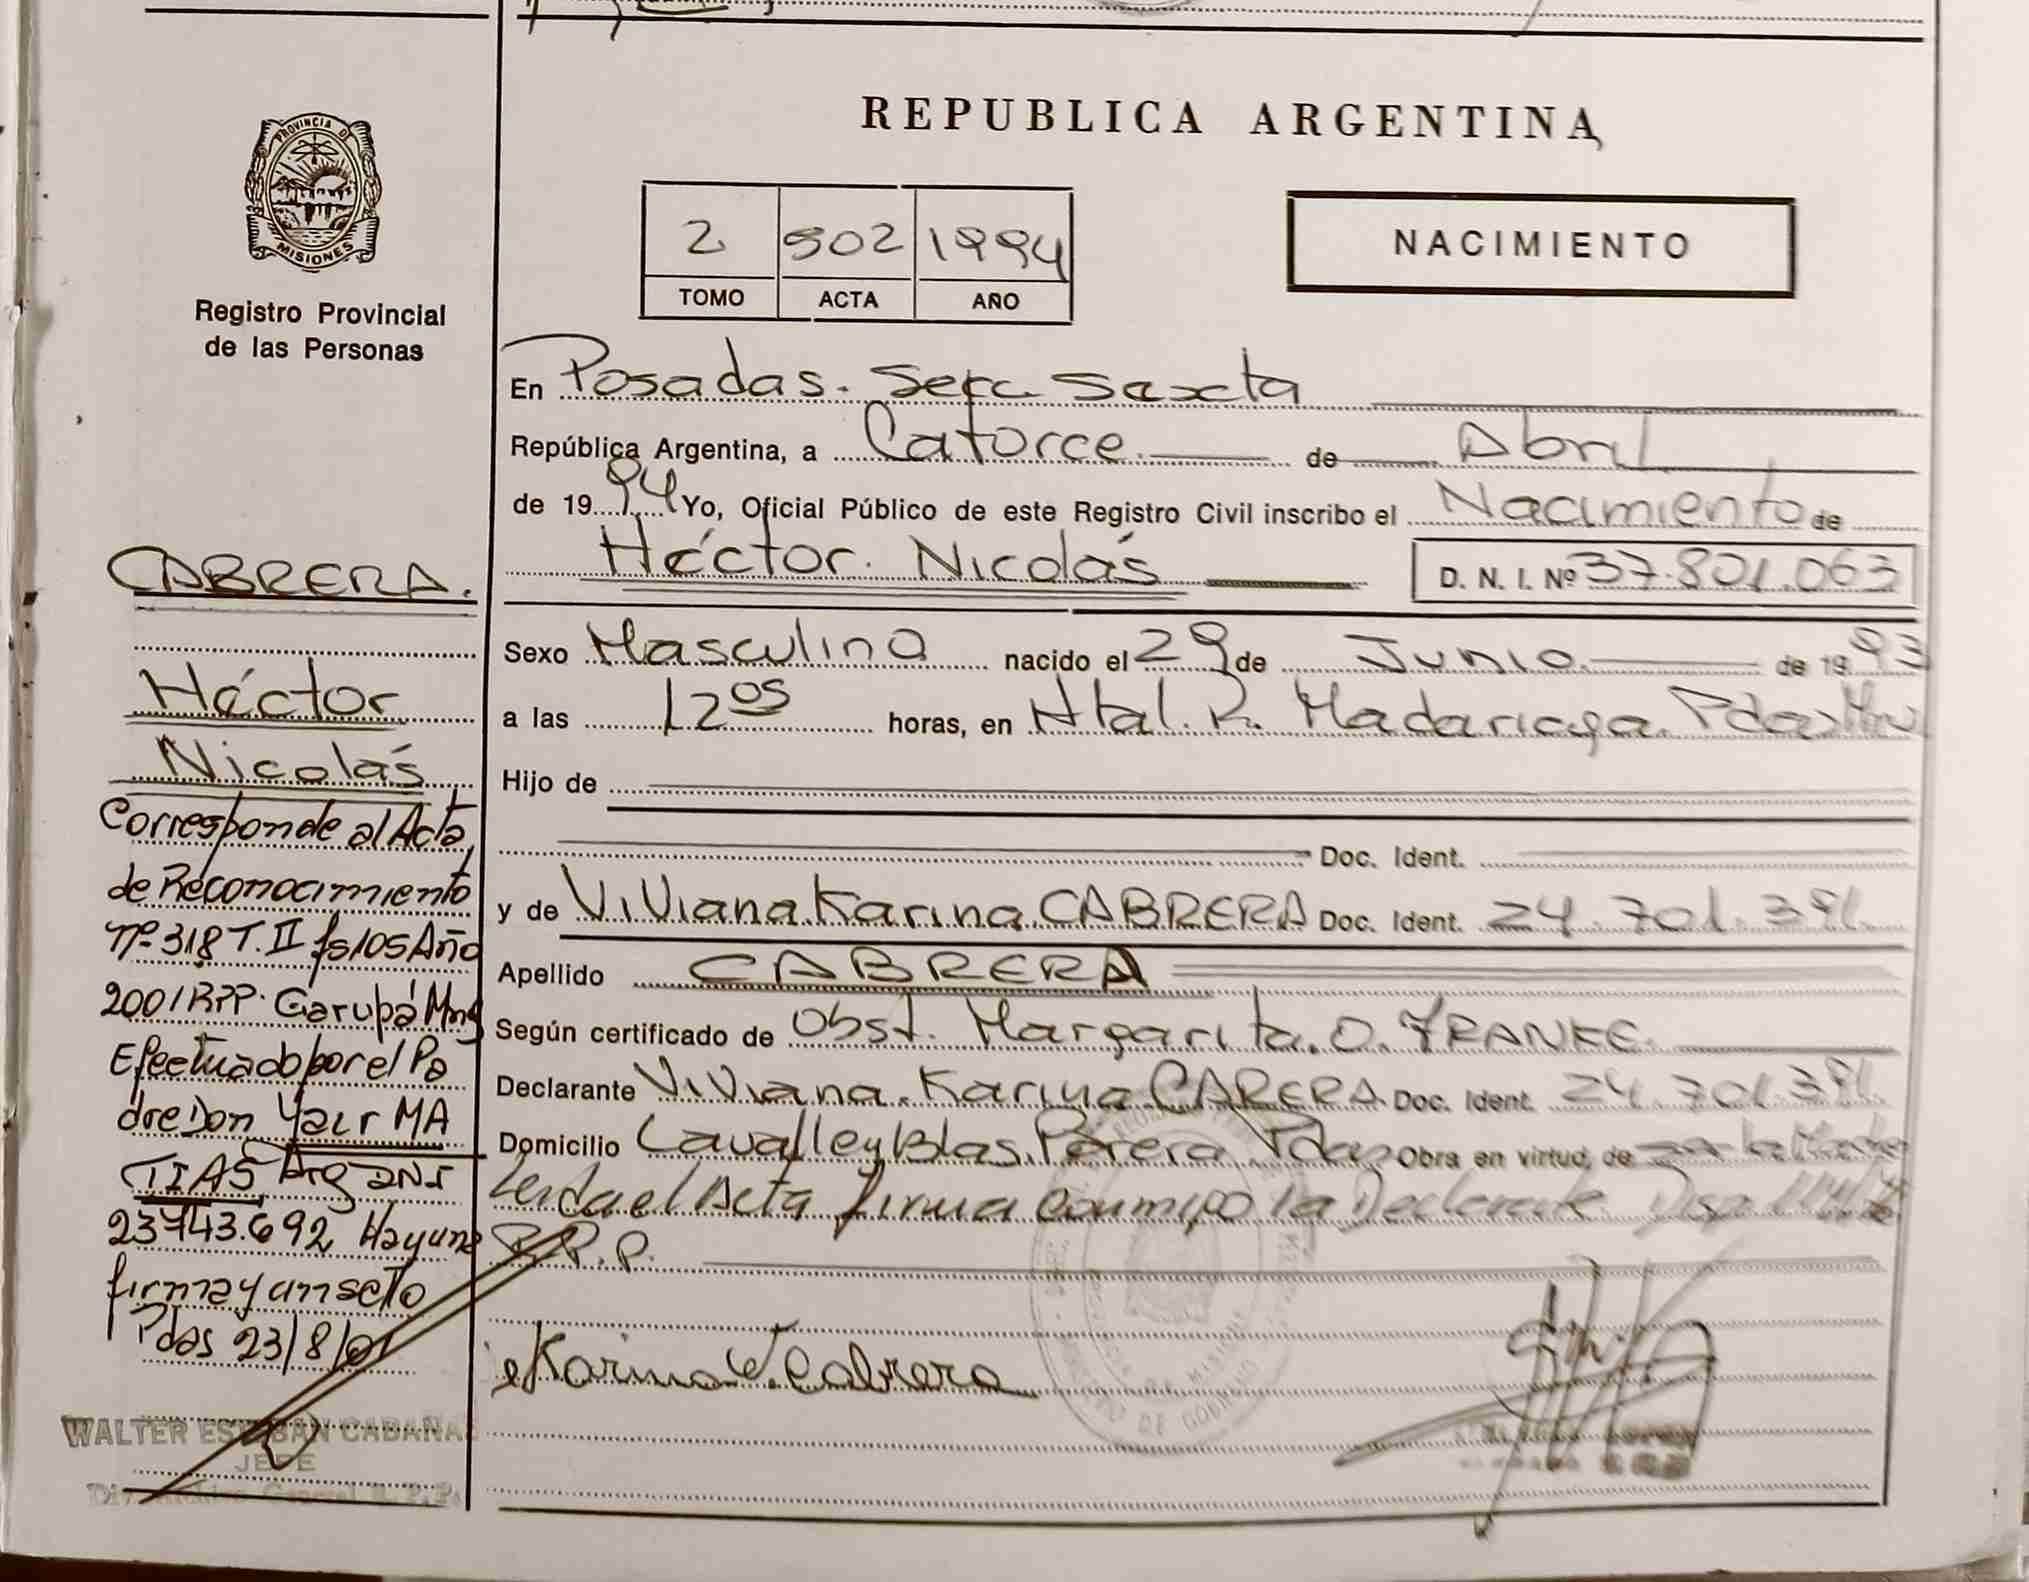 REPUBLICA ARGENTINA
PROVINCIA DE
MISIONES
Registro Provincial
de las Personas
2 502 1994
TOMO ACTA AÑO
NACIMIENTO
En Posadas. Secc. Sexta
República Argentina, a Catorce de Abril
de 1994 Yo, Oficial Público de este Registro Civil inscribo el Nacimiento de
Héctor. Nicolás D. N. I. Nº 37.801.063
Sexo Masculino nacido el 29 de Junio de 1993
a las 12 05 horas, en Htal. R. Madariaga. Pdas Mnes
Hijo de
Doc. Ident.
y de Viviana Karina CABRERA Doc. Ident. 24.701.391
Apellido CABRERA
Según certificado de Obst. Margarita. O. FRANKE.
Declarante Viviana. Karina CARERA Doc. Ident. 24.701.391
Domicilio Lavalle y Blas Parera Pdas Obra en virtud de
Leida el Acta firma conmigo la Declarante
R.P.P.
Karina V. Cabrera
CABRERA.
Héctor
Nicolás
Corresponde al Acta
de Reconocimiento
Nº 318 T. II fs 105 Año
2001 RPP. Garupá Mns
Efectuado por el Pa
dre Don Yacir MA
TIAS Arg DNI
23743.692 Hay una
firma y un sello
Pdas 23/8/01
WALTER ESTEBAN CABAÑAS
JEFE
Div. Archivo General R. P. P.